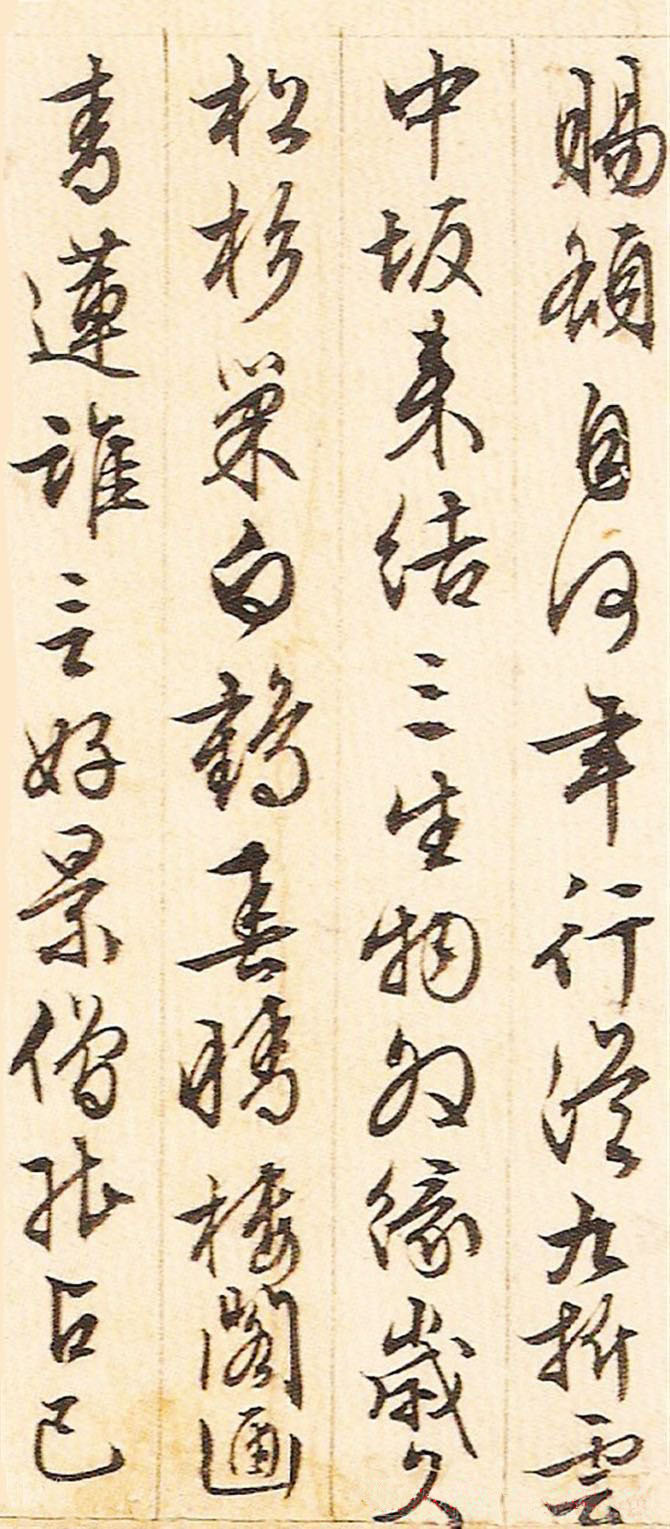 賜額自何年行從九折雲
中坂来結三生物外緣歲久
松杉巢白鶴春晴樓閣
青蓮誰言好景僧能占已